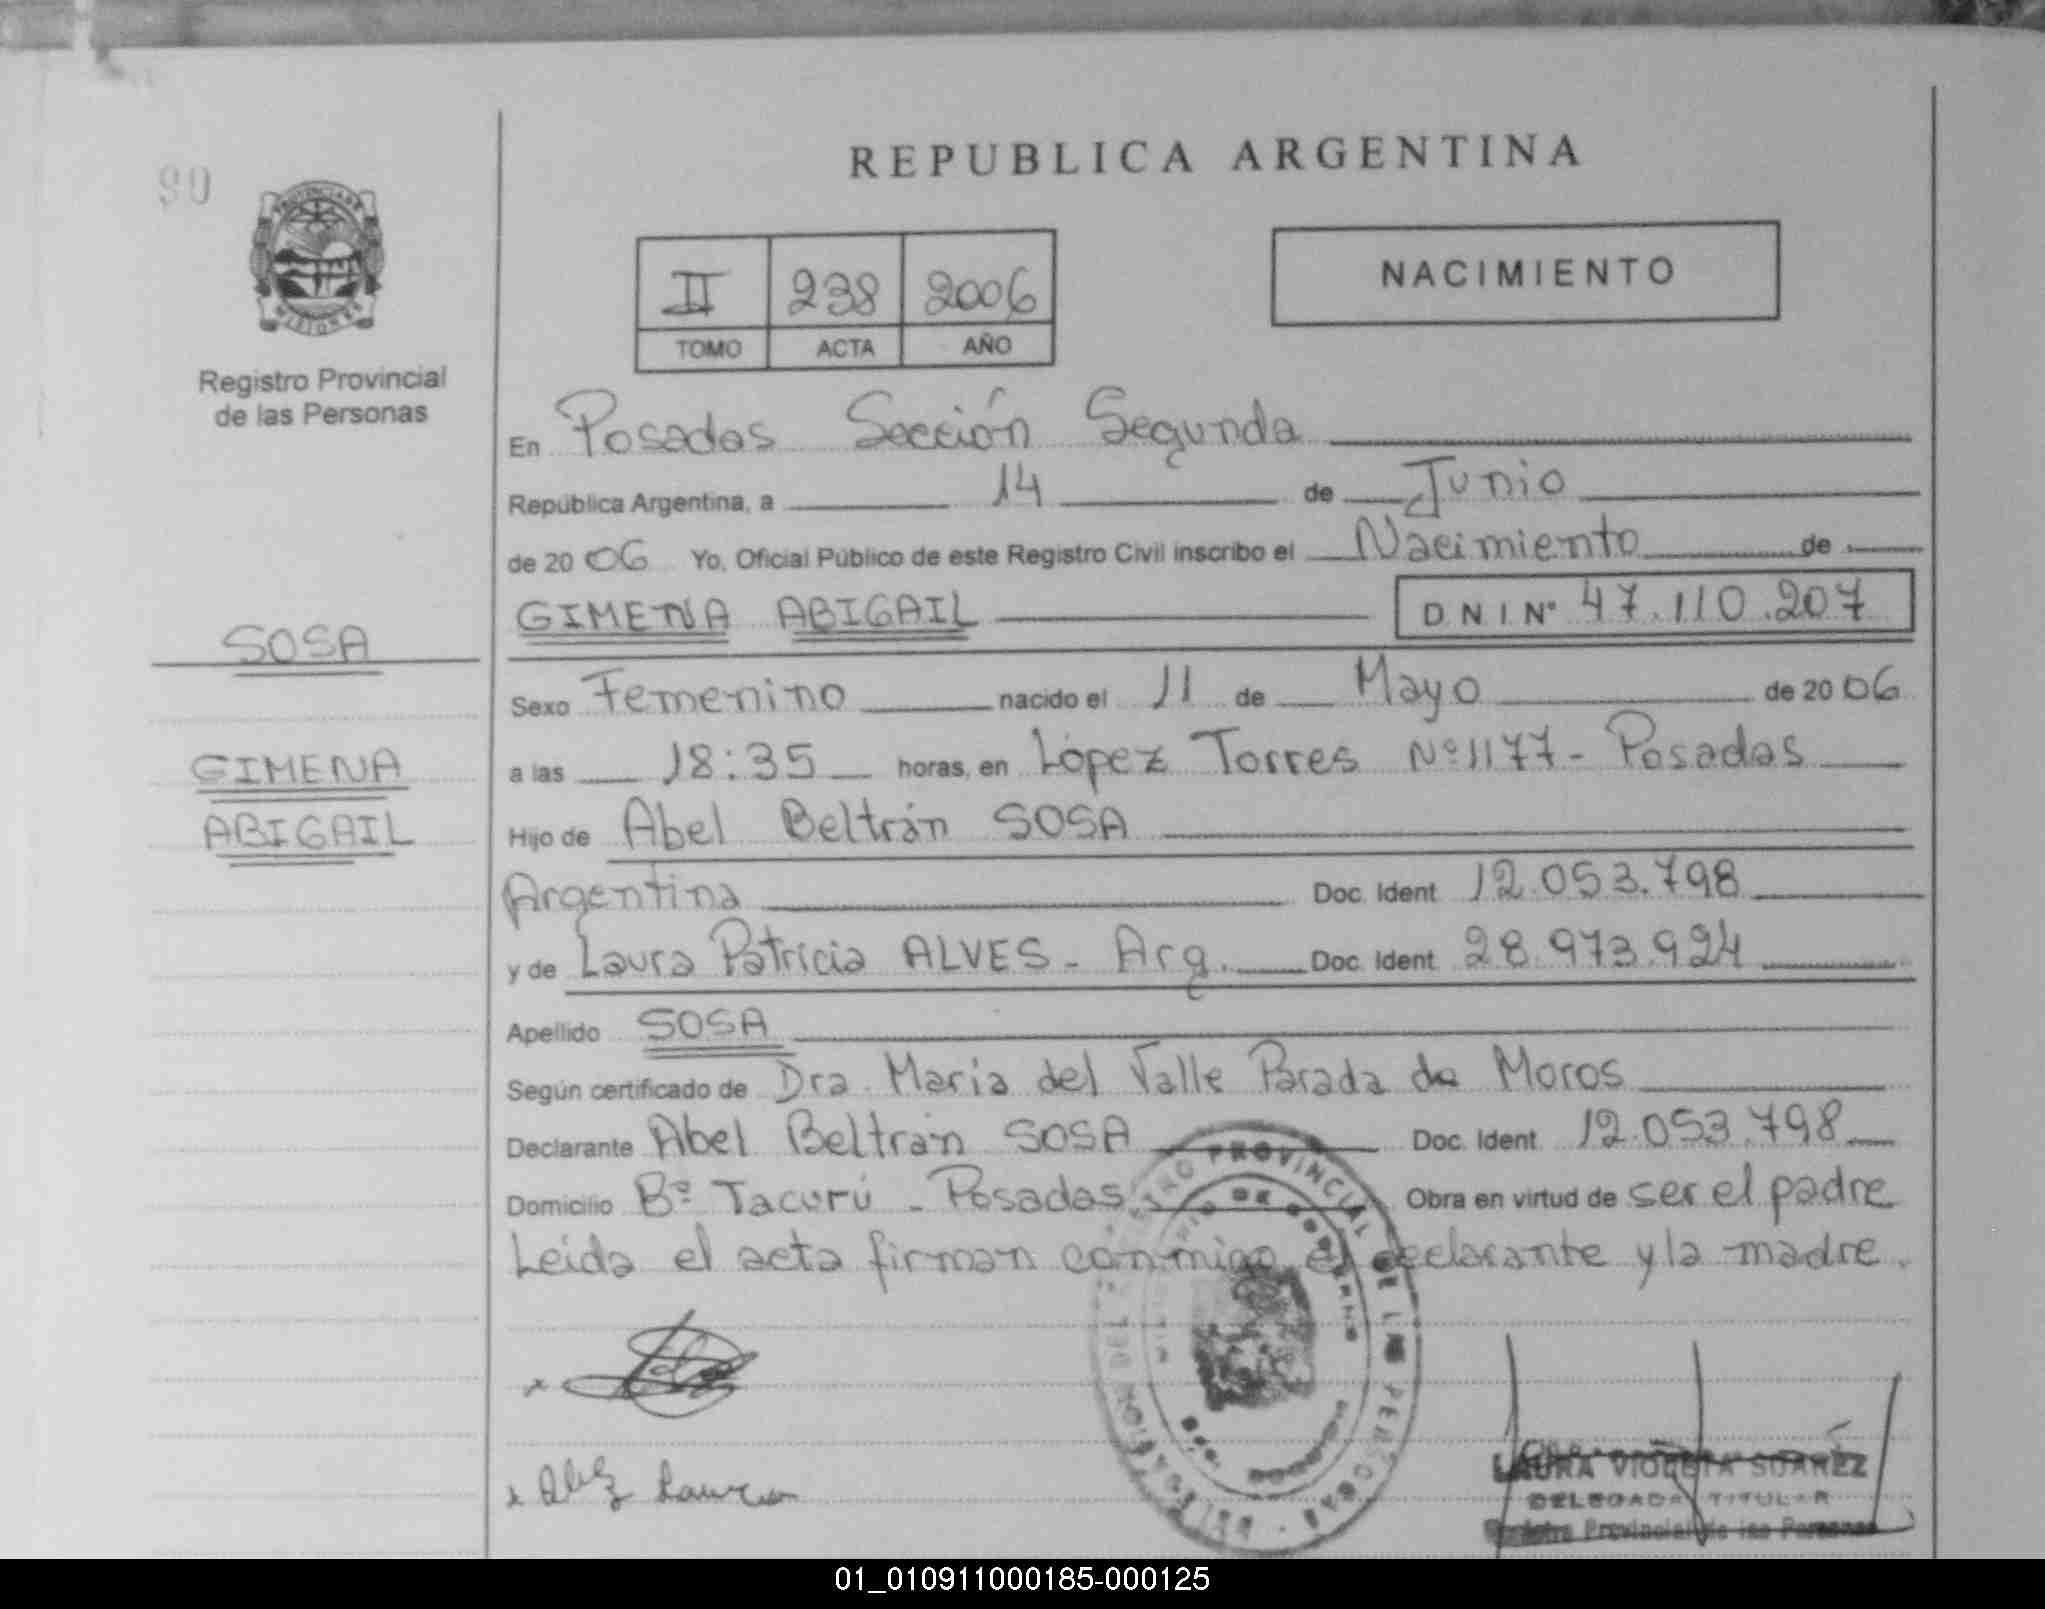 90
REPUBLICA ARGENTINA
PROVINCIA DE MISIONES
II 238 2006
TOMO ACTA AÑO
NACIMIENTO
Registro Provincial
de las Personas
En Posadas Sección Segunda
República Argentina, a 14 de Junio
de 20 06 Yo, Oficial Público de este Registro Civil inscribo el Nacimiento de
GIMENA ABIGAIL D N I N° 47.110.207
SOSA
Sexo Femenino nacido el 11 de Mayo de 20 06
GIMENA
ABIGAIL
a las 18:35 horas, en López Torres Nº 1177 - Posadas
Hijo de Abel Beltrán SOSA
Argentina Doc. Ident. 12.053.798
y de Laura Patricia ALVES - Arg. Doc. Ident. 28.973.924
Apellido SOSA
Según certificado de Dra. María del Valle Parada de Moros
Declarante Abel Beltrán SOSA Doc. Ident. 12.053.798
Domicilio Bº Tacurú - Posadas Obra en virtud de ser el padre
Leida el acta firman conmigo el declarante y la madre.
REGISTRO PROVINCIAL DE LAS PERSONAS
DELEGACION
x
x Laura
LAURA VIOLETA SUAREZ
DELEGADA TITULAR
Registro Provincial de las Personas
01_010911000185-000125